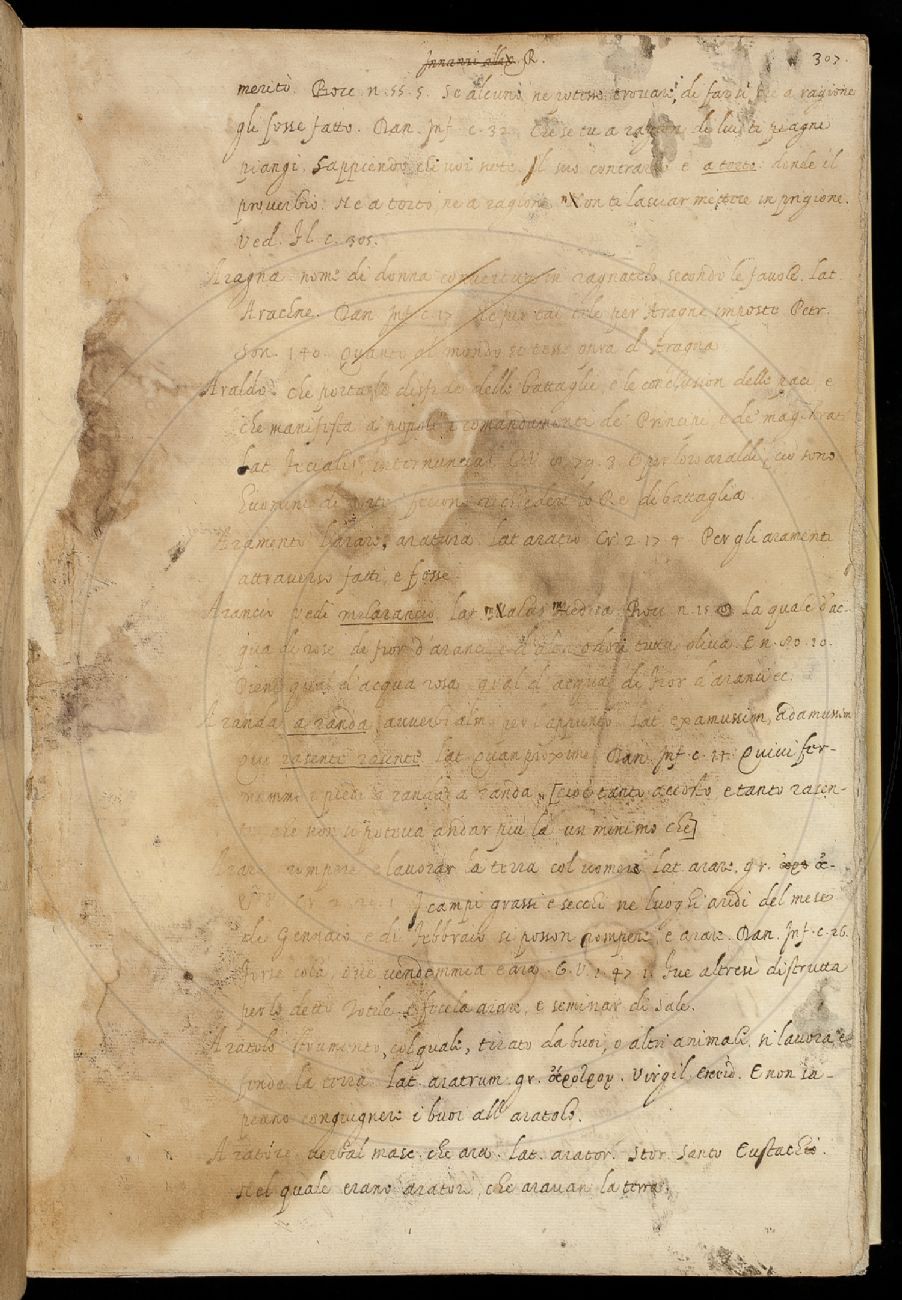 Innanzi alla R.
307.
merito. Bocc. n. 55. 5. Se alcuno ne potesse trovare, di far sì, che a ragione
gli fosse fatto. Dan. Inf. c. 32. Che se tu a ragion di lui ti piagni
piangi. Sappiendo chi voi siete. Il suo contrario è a torto: donde il
proverbio. Ne a torto, ne a ragione Non ti lasciar mettere in prigione.
Ved. Fl. c. 305.
Aragna nome di donna convertita in ragnatelo, secondo le favole. Lat.
Aracne. Dan. Inf. c. 17. Ne fur tai tele per Aragne imposte Petr.
Son. 140. Quanto al mondo si tesse opra d' Aragna
Araldo. che porta le disfide delle battaglie, e le conclusion delle paci e
che manifesta a' popoli i comandamenti de' Principi, e de' magistrati
Lat. feciales, internuncius G.V. 79. 3. E per loro araldi, ciò sono
huomini di corte feciono richiedere lo Re di battaglia
Aramento l'arare, aratura. lat. aratio. Cr. 2. 17. 4. Per gli aramenti
attraverso fatti, e fosse.
Arancio Vedi melarancio. Lat. malus medica. Bocc. n. 15. La quale d'ac-
qua di rose di fior d'aranci, e d'altri odori tutta oliva. E n. 80. 10.
Pieni qual d'acqua rosa, qual d'acqua di fior d'aranci etc.
Aranda a randa, avverbialm. per l'appunto. Lat. examussim, adamussim
rasente rasente. Lat. quam proxime Dan. Inf. c. 14. Quivi fer-
mammo i piedi a randa a randa. [cioè tanto accosto, e tanto rasen-
te, che non si poteva andar più là un minimo che]
Arare rompere, e lavorar la terra col vomere lat. arare. gr.
Cr. 2. I campi grassi e seccli ne luoghi aridi del mese
di Gennaio, e di Febbraio si posson rompere, e arare. Dan. Inf. c. 26.
Forse colà, dove vendemmia e ara. G.V. 1. 47. 1. Fue altresì distrutta
per lo detto Totile e fecela arare, e seminar di sale.
Aratolo strumento, col quale, tirato da buoi, o altri animali, si lavora e
fende la terra. lat. aratrum gr. ἄροτρον. Virgil. Eneid. E non in-
piano congiugnere i buoi all' aratolo.
Aratore verbal masc. che ara. lat. arator. Stor. Santo Eustachio.
Nel quale erano aratori, che aravan la terra.